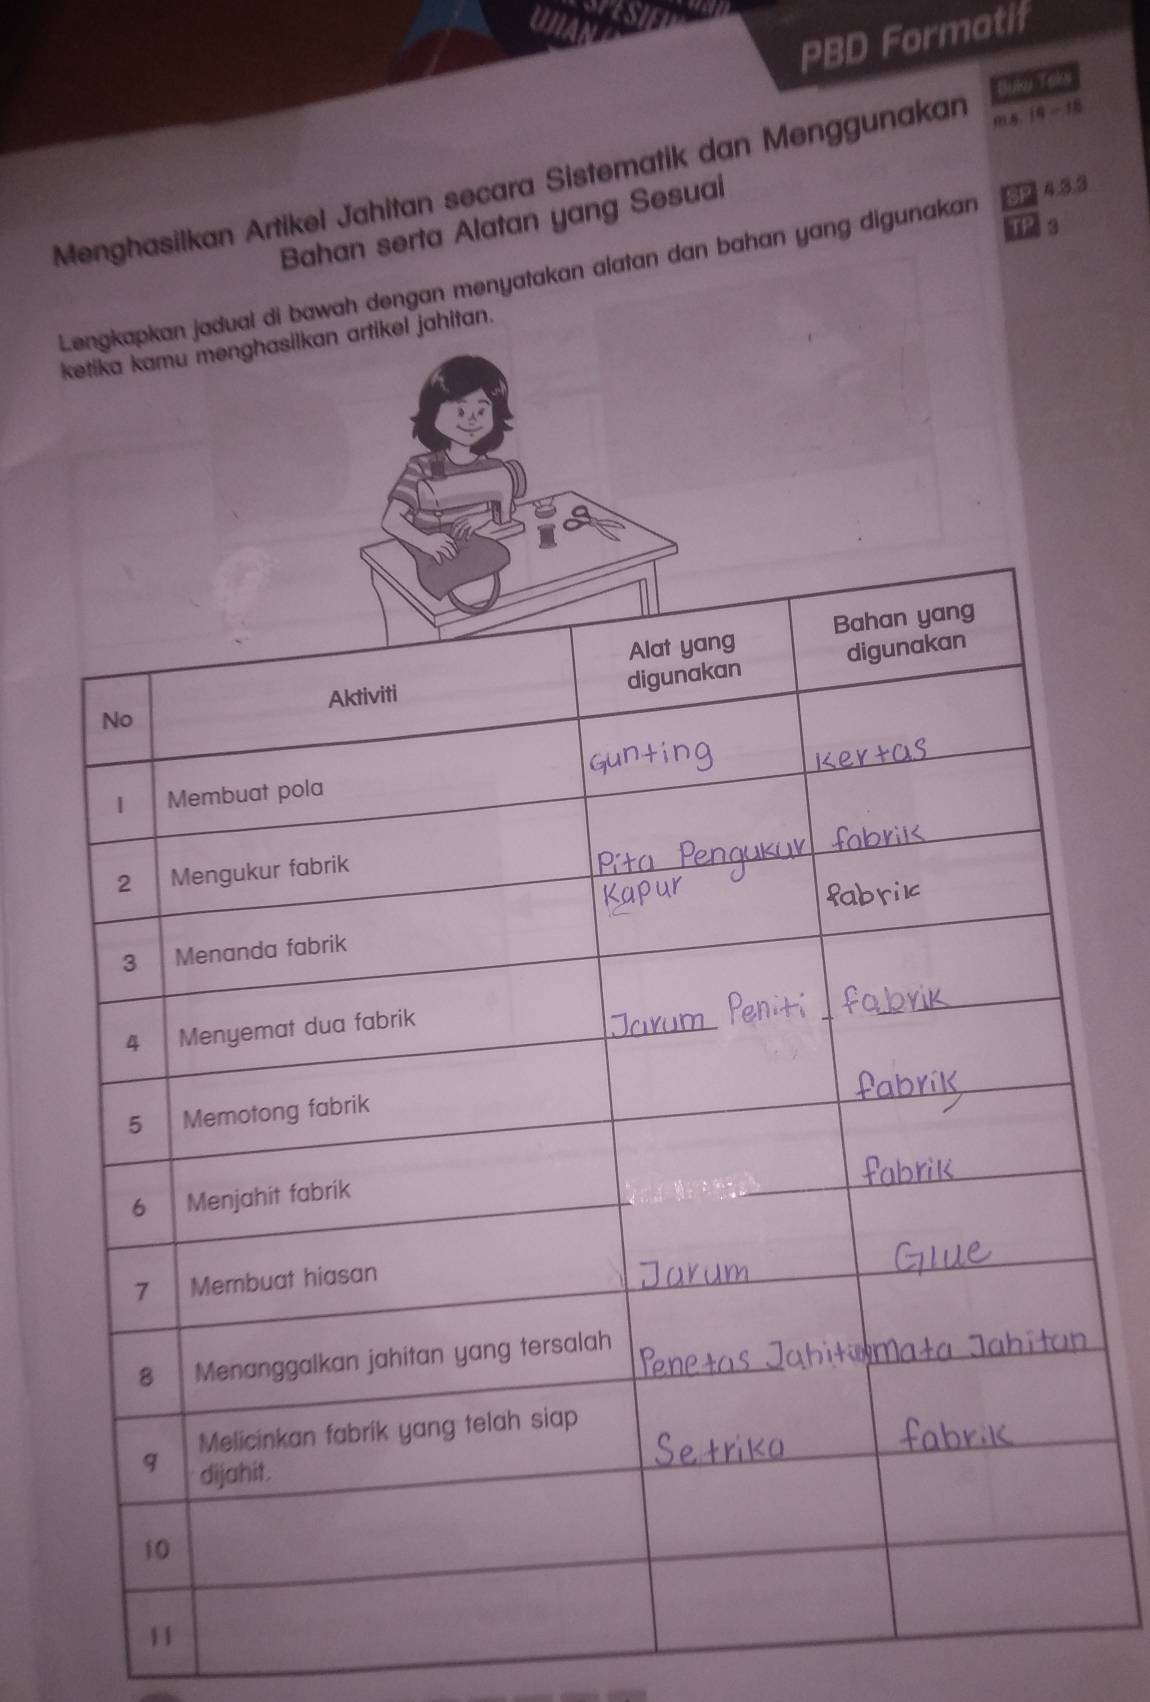 UJIAN
PBD Formatif
Buku Teks
m.s. 14 - 18
Menghasilkan Artikel Jahitan secara Sistematik dan Menggunakan
Bahan serta Alatan yang Sesuai
SP 4.3.3
TP 3
Lengkapkan jadual di bawah dengan menyatakan alatan dan bahan yang digunakan
ketika kamu menghasilkan artikel jahitan.
No Aktiviti Alat yang digunakan Bahan yang digunakan
1 Membuat pola Gunting Kertas
2 Mengukur fabrik Pita Pengukur fabrik
3 Menanda fabrik Kapur fabrik
4 Menyemat dua fabrik Jarum Peniti fabrik
5 Memotong fabrik fabrik
6 Menjahit fabrik fabrik
7 Membuat hiasan Jarum Glue
8 Menanggalkan jahitan yang tersalah Penetas Jahitan mata Jahitan
9 Melicinkan fabrik yang telah siap Setrika fabrik
dijahit.
10
11